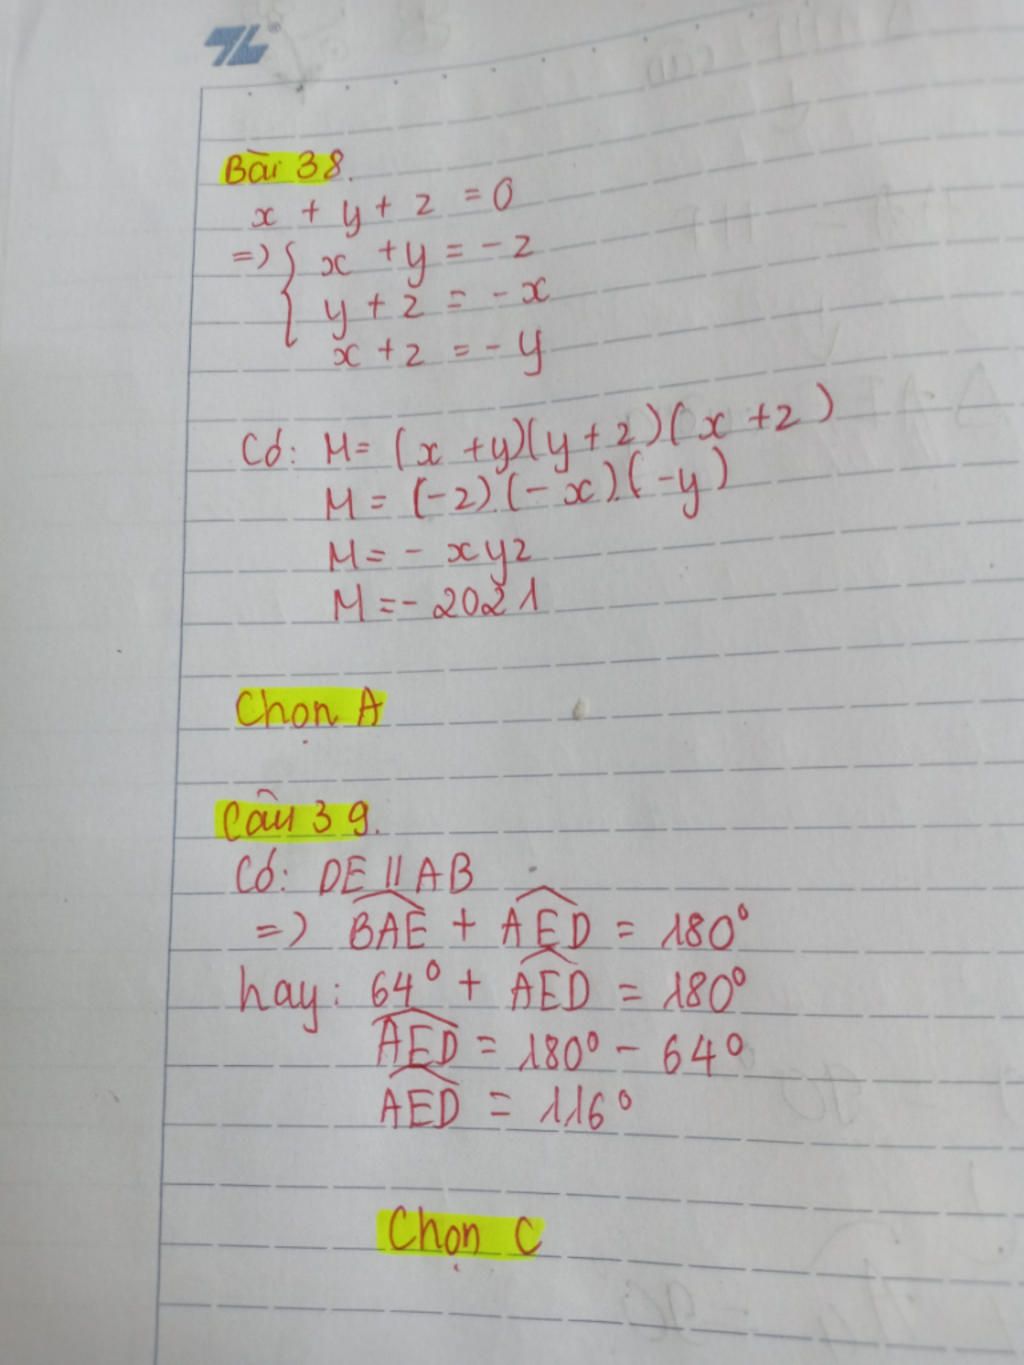 Bài 38.
x + y + z = 0
=> { x + y = - z
y + z = - x
x + z = - y
Có: M = (x + y)(y + z)(x + z)
M = (-z)(-x).(-y)
M = - xyz
M = - 2021
Chọn A
Câu 39.
Có: DE // AB
=> BAE + AED = 180°
hay: 64° + AED = 180°
AED = 180° - 64°
AED = 116°
Chọn C